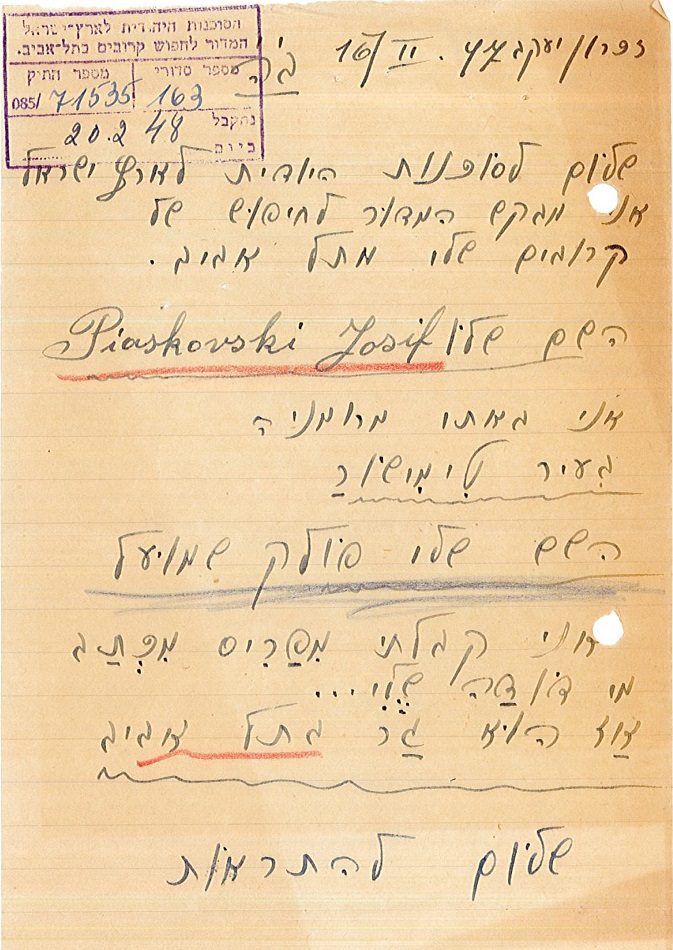 הסוכנות היהודית לארץ־ישראל
המדור לחפוש קרובים בתל־אביב.
מספר סדורי מספר התיק
163 085/ 71535
נתקבל
ביום 20.2 48
זכרון יעקב 16/II. 47
שלום לסוכנות היודית לארץ ישראל
אני מבקש המדור לחיפוש של
קרובים שלי מתל אביב.
השם שלו Piaskovski Josif
אני באתו מרומניה
בעיר טִימִישׁוֹרַ
השם שלו פולק שמויעל
אני קבלתי מִפַּרִיס מִכְתַב
מי דוֹדַה שֶלִי...
הוא גַר בתל אביב
שלום להתראות